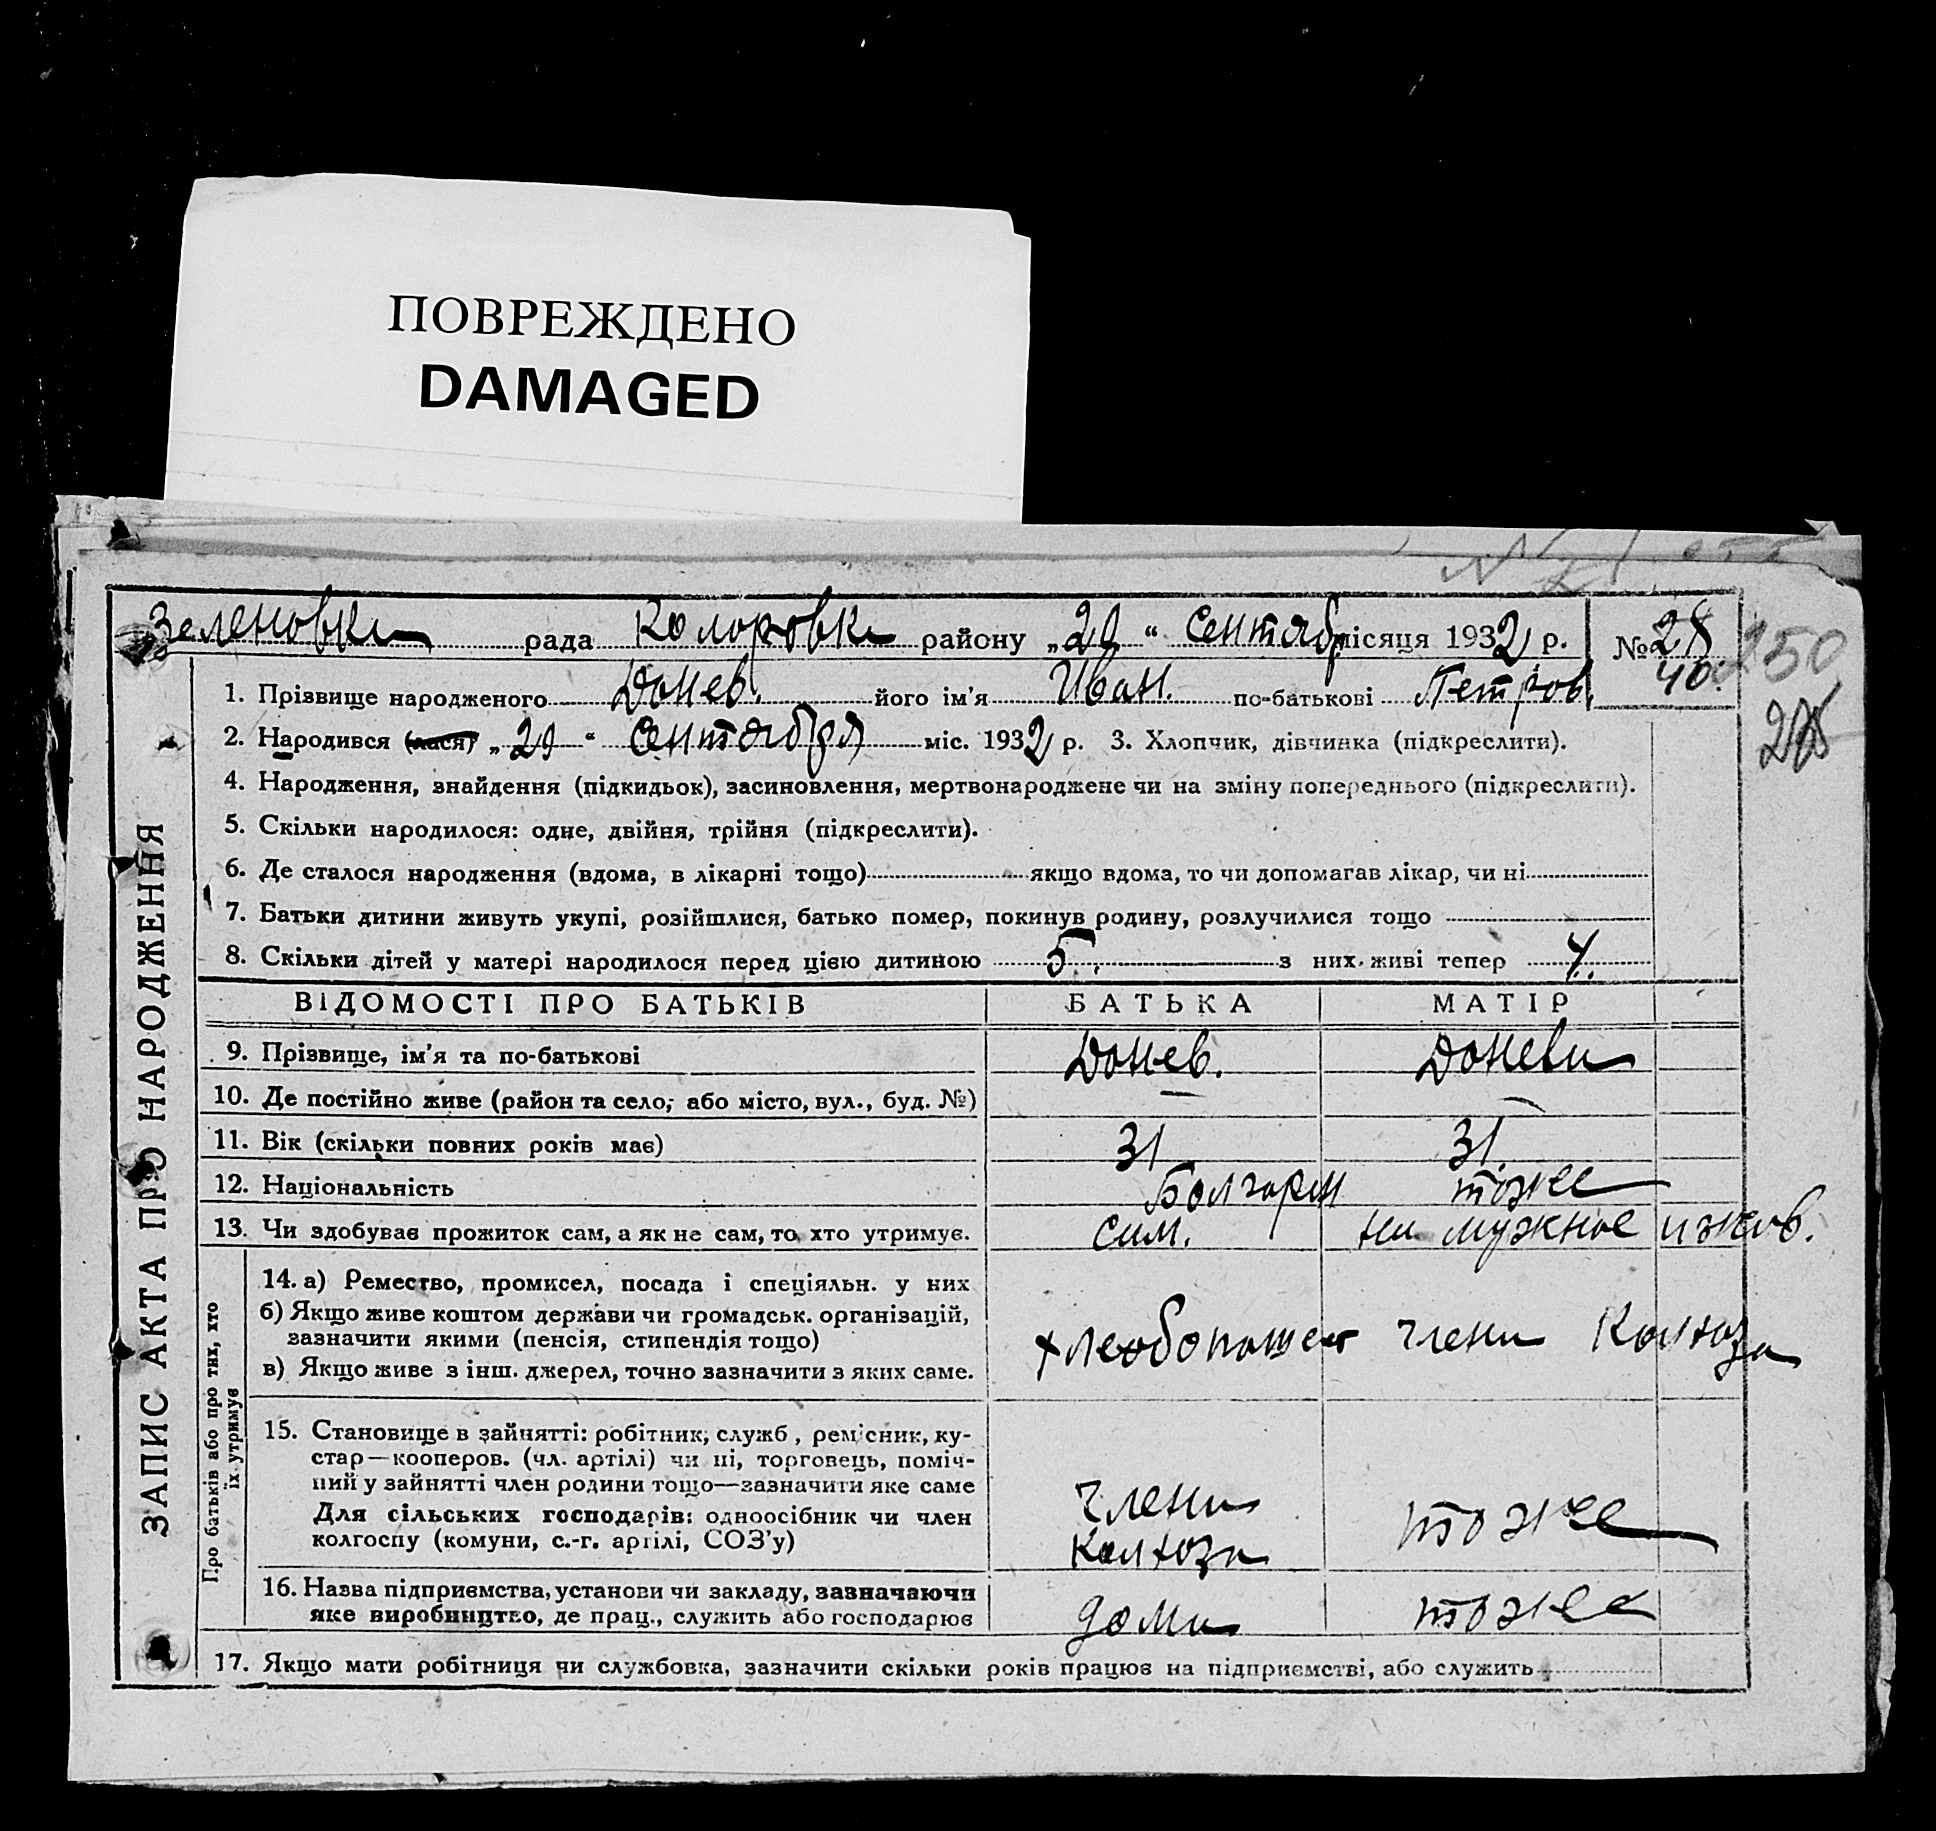 ПОВРЕЖДЕНО
DAMAGED
Зеленовка рада Коларовка району „29“ Сентябр місяця 1932 р. № 28
40.
250
1. Прізвище народженого Донев. його ім'я Иван. по-батькові Петров.
2. Народився (лася) „29“ Сентября міс. 1932 р. 3. Хлопчик, дівчинка (підкреслити).
4. Народження, знайдення (підкидьок), засиновлення, мертвонароджене чи на зміну попереднього (підкреслити).
5. Скільки народилося: одне, двійня, трійня (підкреслити).
6. Де сталося народження (вдома, в лікарні тощо) якщо вдома, то чи допомагав лікар, чи ні
7. Батьки дитини живуть укупі, розійшлися, батько помер, покинув родину, розлучилися тощо
8. Скільки дітей у матері народилося перед цією дитиною 5. з них живі тепер 4.
ВІДОМОСТІ ПРО БАТЬКІВ БАТЬКА МАТІР
9. Прізвище, ім'я та по-батькові Донев. Донева
10. Де постійно живе (район та село, або місто, вул., буд. №) — —
11. Вік (скільки повних років має) 31 31
12. Національність Болгарин тоже
13. Чи здобуває прожиток сам, а як не сам, то хто утримує. сам. на мужное ижев.
14. а) Ремество, промисел, посада і спеціяльн. у них
б) Якщо живе коштом держави чи громадськ. організацій,
зазначити якими (пенсія, стипендія тощо)
в) Якщо живе з інш. джерел, точно зазначити з яких саме.
хлебопашест члени Колхоза
15. Становище в зайнятті: робітник, служб., ремісник, ку-
стар—кооперов. (чл. артілі) чи ні, торговець, поміч-
ний у зайнятті член родини тощо—зазначити яке саме
Для сільських господарів: одноосібник чи член
колгоспу (комуни, с.-г. артілі, СОЗ'у)
члени
Колхоза
тоже
16. Назва підприємства, установи чи закладу, зазначаючи
яке виробництво, де прац., служить або господарює
дома тоже
17. Якщо мати робітниця чи службовка, зазначити скільки років працює на підприємстві, або служить
ЗАПИС АКТА ПРО НАРОДЖЕННЯ
Про батьків або про тих, хто
їх утримує